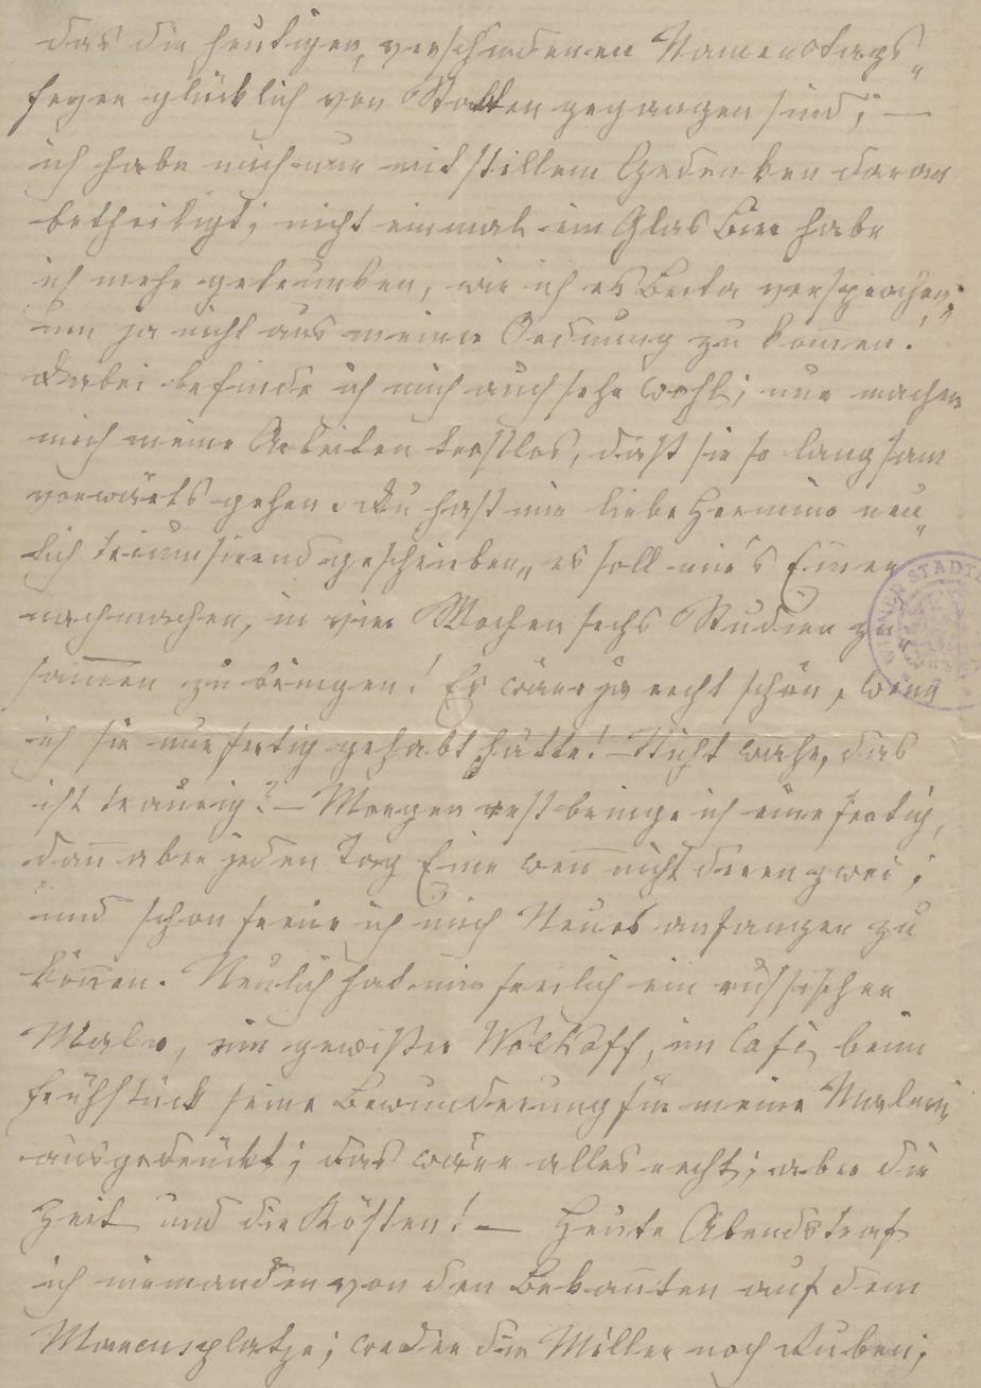 das die heutigen, verschiedenen Namenstags„
feyer glücklich von Statten gegangen sind; —
ich habe mich nur mit stillem Gedenken daran
betheiligt; nicht einmal ein Glas Bier habe
ich mehr getrunken, wie ich es Berta versprochen,
um ja nicht aus meiner Ordnung zu kom̄en!
Dabei befinde ich mich auch sehr wohl; nur machen
mich meine Arbeiten trostlos, daß sie so langsam
vorwärts gehen. Du hast mir liebe Hermine neu„
lich triumfirend geschrieben, es soll mir's Einer
nachmachen, in vier Wochen sechs Studien zu
sam̄en zu bringen! Es wäre ja recht schön, wenn
ich sie nur fertig gehabt hätte! – Nicht wahr, das
ist traurig? – Morgen erst bringe ich eine fertig,
dan̄ aber jeden Tag Eine wen̄ nicht deren zwei;
und schon freue ich mich Neues anfangen zu
kön̄en. Neulich hat mir freilich ein russischer
Maler, ein gewißer Wolkoff, im Café beim
Frühstück seine Bewunderung für meine Malerei
ausgedrückt; das wäre alles recht; aber die
Zeit und die Kosten! — Heute Abends traf
ich niemanden von den Bekan̄ten auf dem
Marcusplatze; weder die Müller noch Ruben;
STADT